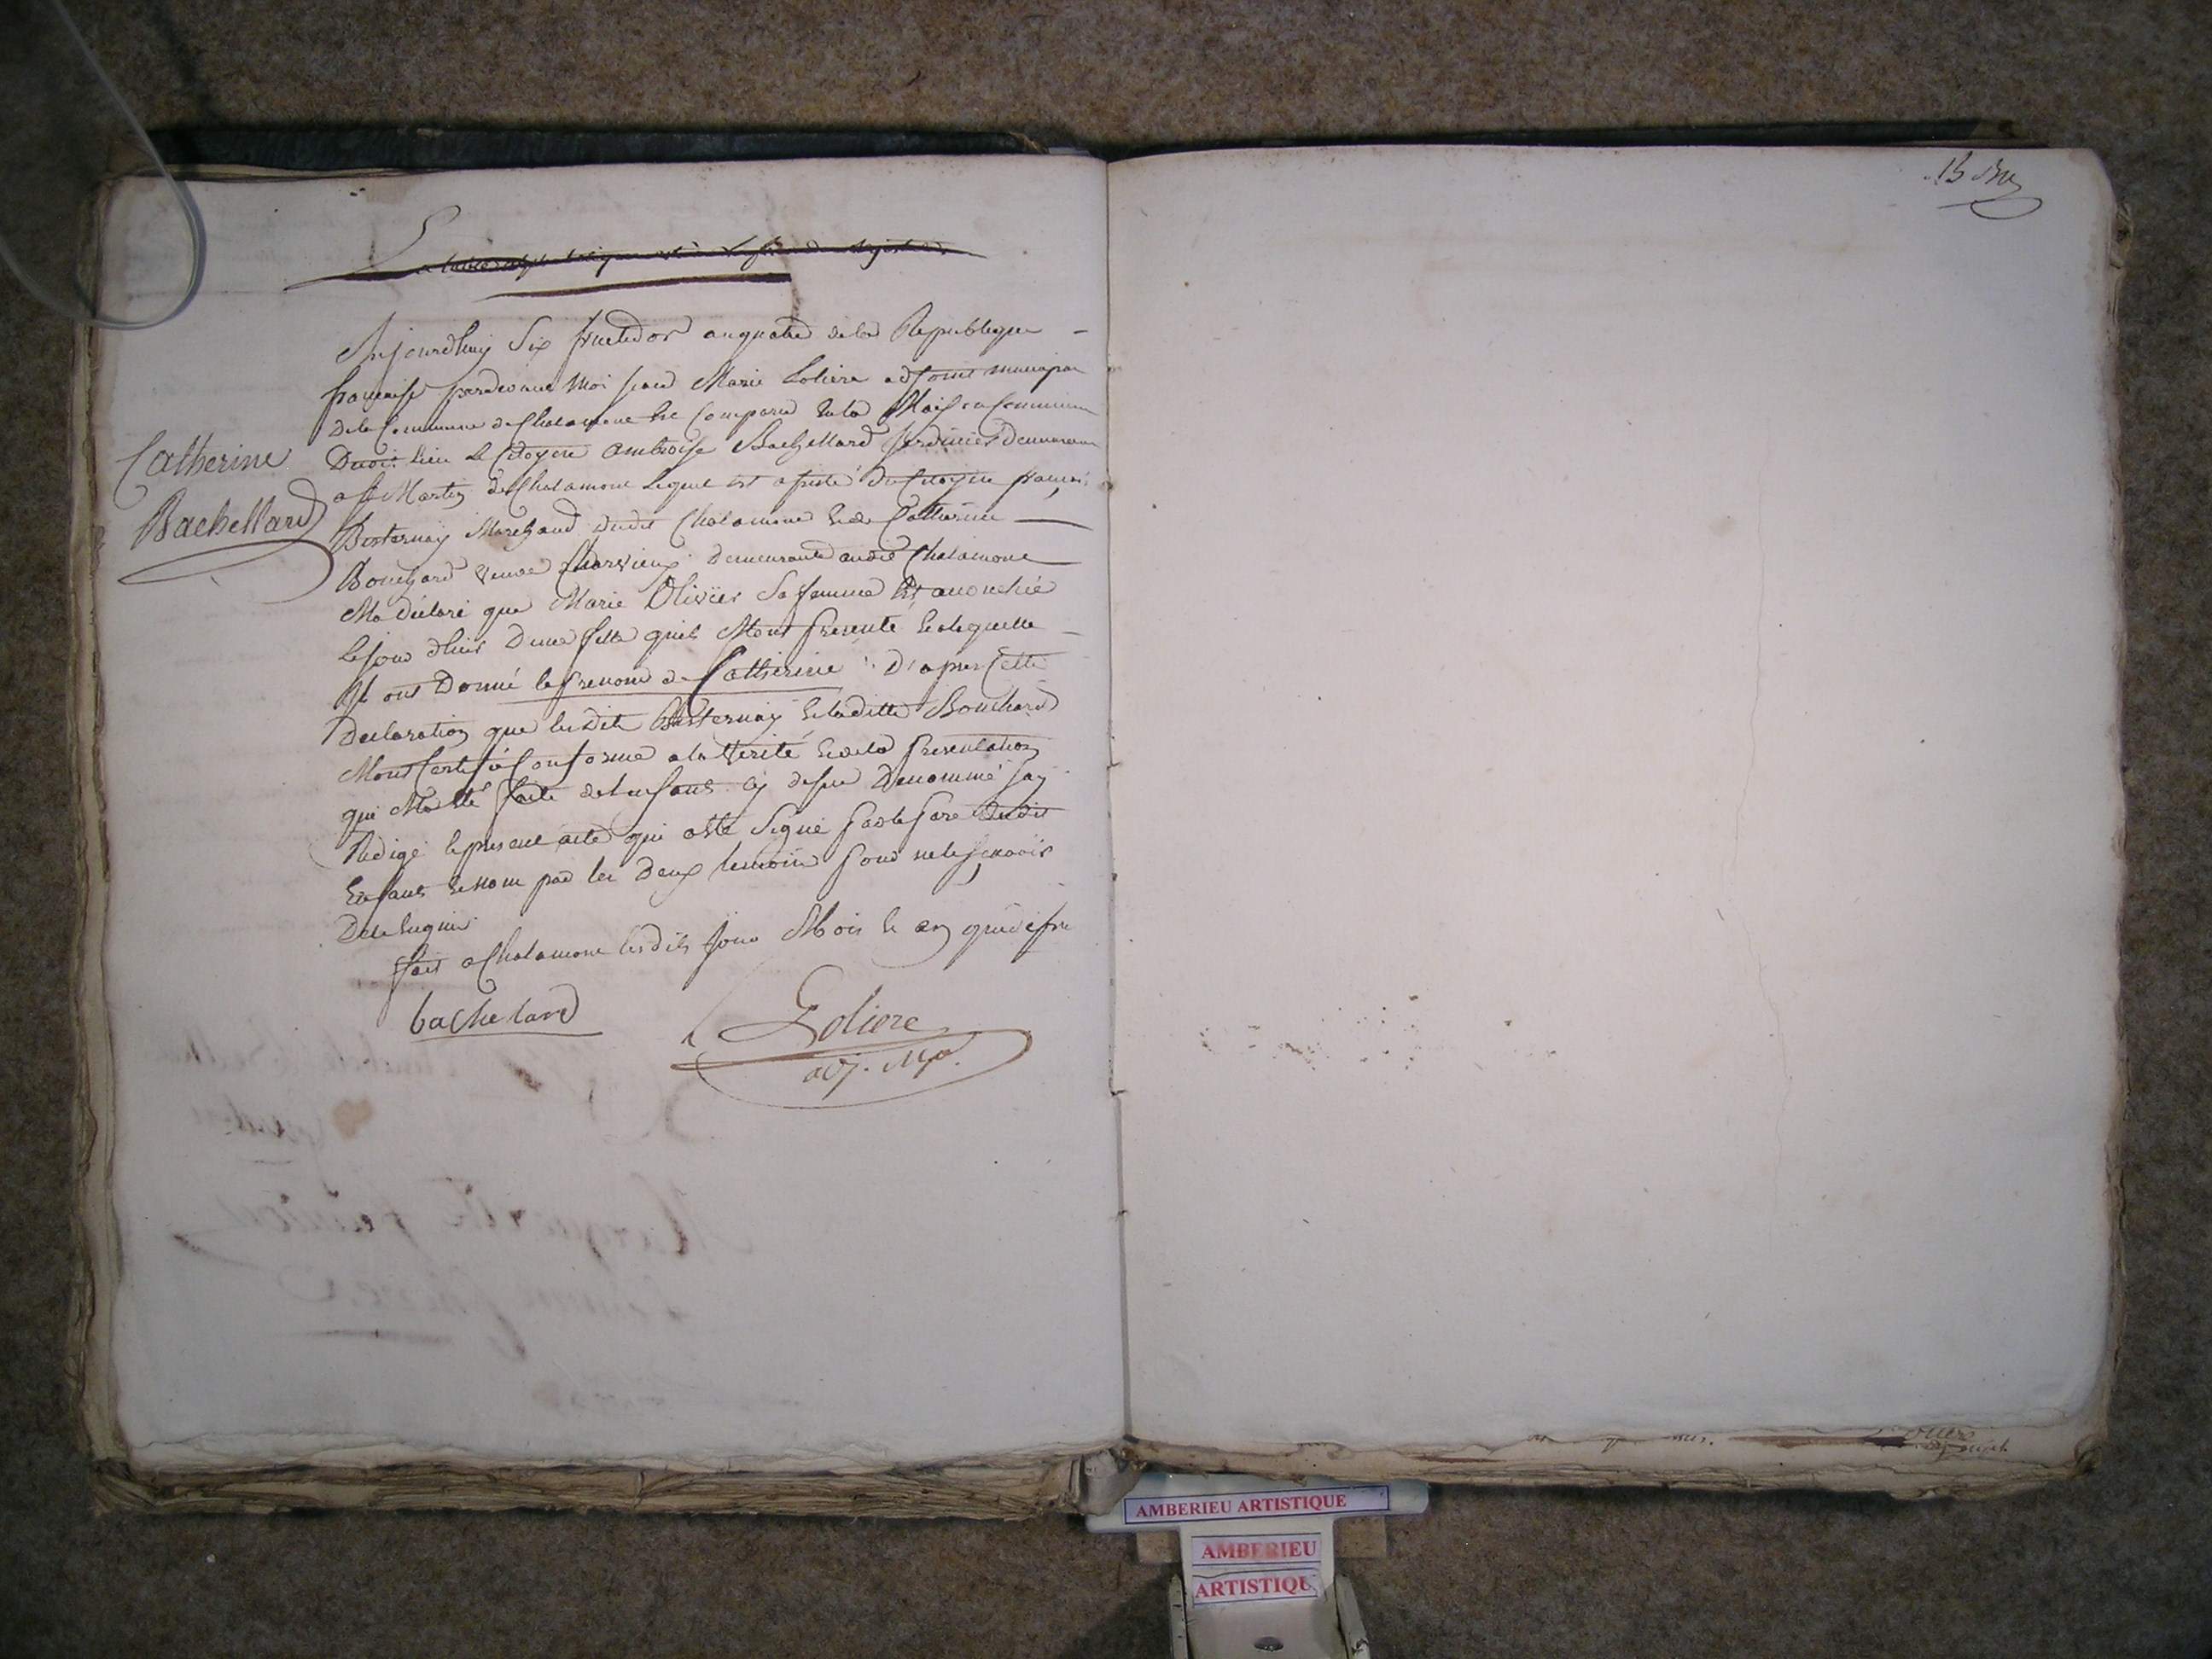 Aujourdhuy Six fructidor an quatre de la Republique
française pardevant Moi jean Marie Loliere adjoint municipal
De la Commune de Chalamont Est Comparu En la Maison Commune
Dudit lieu Le Citoyen Ambroise Bachellard Jardinier Demeurant
a St Martin de Chalamont Lequel Est assisté du Citoyen françois
Marchand dudit Chalamont Et de Catherine
Catherine
Bachellard
Bouchard veuve Charvieux Demeurante audit Chalamont
Ma déclaré que Marie Olivier Sa femme Est accouchée
Le jour d'hier D'une fille quils Mont presenté Et a laquelle
Ils ont Donné le prenom de Catherine D'apres Cette
Declaration que lesdits Et laditte Bouchard
Mont Certifié Conforme a la Verité Et de la presentation
qui Ma Eté faite de lenfant cy dessus Denommé jay
Redigé le present acte qui a Eté Signé par le pere dudit
Enfant Et non par les Deux temoins pour ne le sçavoir
De ce Enquis
fait a Chalamont lesdits jour Mois Et an que dessus
bachelard
Loliere
adj. Mpal.
15
AMBERIEU ARTISTIQUE
AMBERIEU
ARTISTIQU